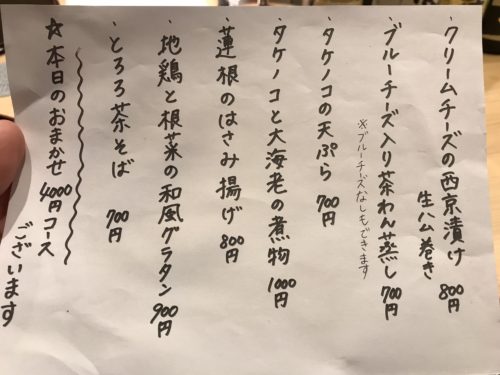 ・クリームチーズの西京漬け
生ハム巻き 800円
・ブルーチーズ入り茶わん蒸し 700円
※ブルーチーズなしもできます
・タケノコの天ぷら 700円
・タケノコと大海老の煮物 1000円
・蓮根のはさみ揚げ 800円
・地鶏と根菜の和風グラタン 900円
・とろろ茶そば 700円
☆本日のおまかせ 4000円コース
ございます